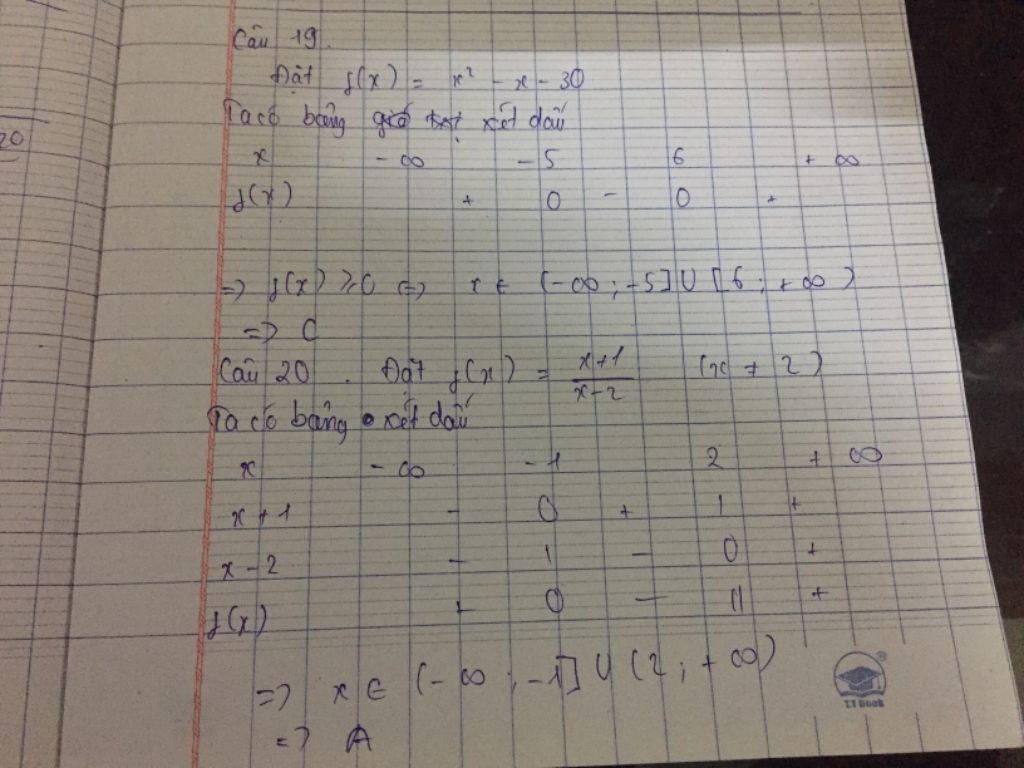 Câu 19.
Đặt f(x) = x² - x - 30
Ta có bảng xét dấu
x -∞ -5 6 +∞
f(x) + 0 - 0 +
=> f(x) ⩾ 0 <=> x ∈ (-∞; -5] ∪ [6; +∞)
=> C
Câu 20. Đặt f(x) = \frac{x+1}{x-2} (x ≠ 2)
Ta có bảng xét dấu
x -∞ -1 2 +∞
x+1 - 0 + | +
x-2 - | - 0 +
f(x) + 0 - || +
=> x ∈ (-∞; -1] ∪ (2; +∞)
=> A
20